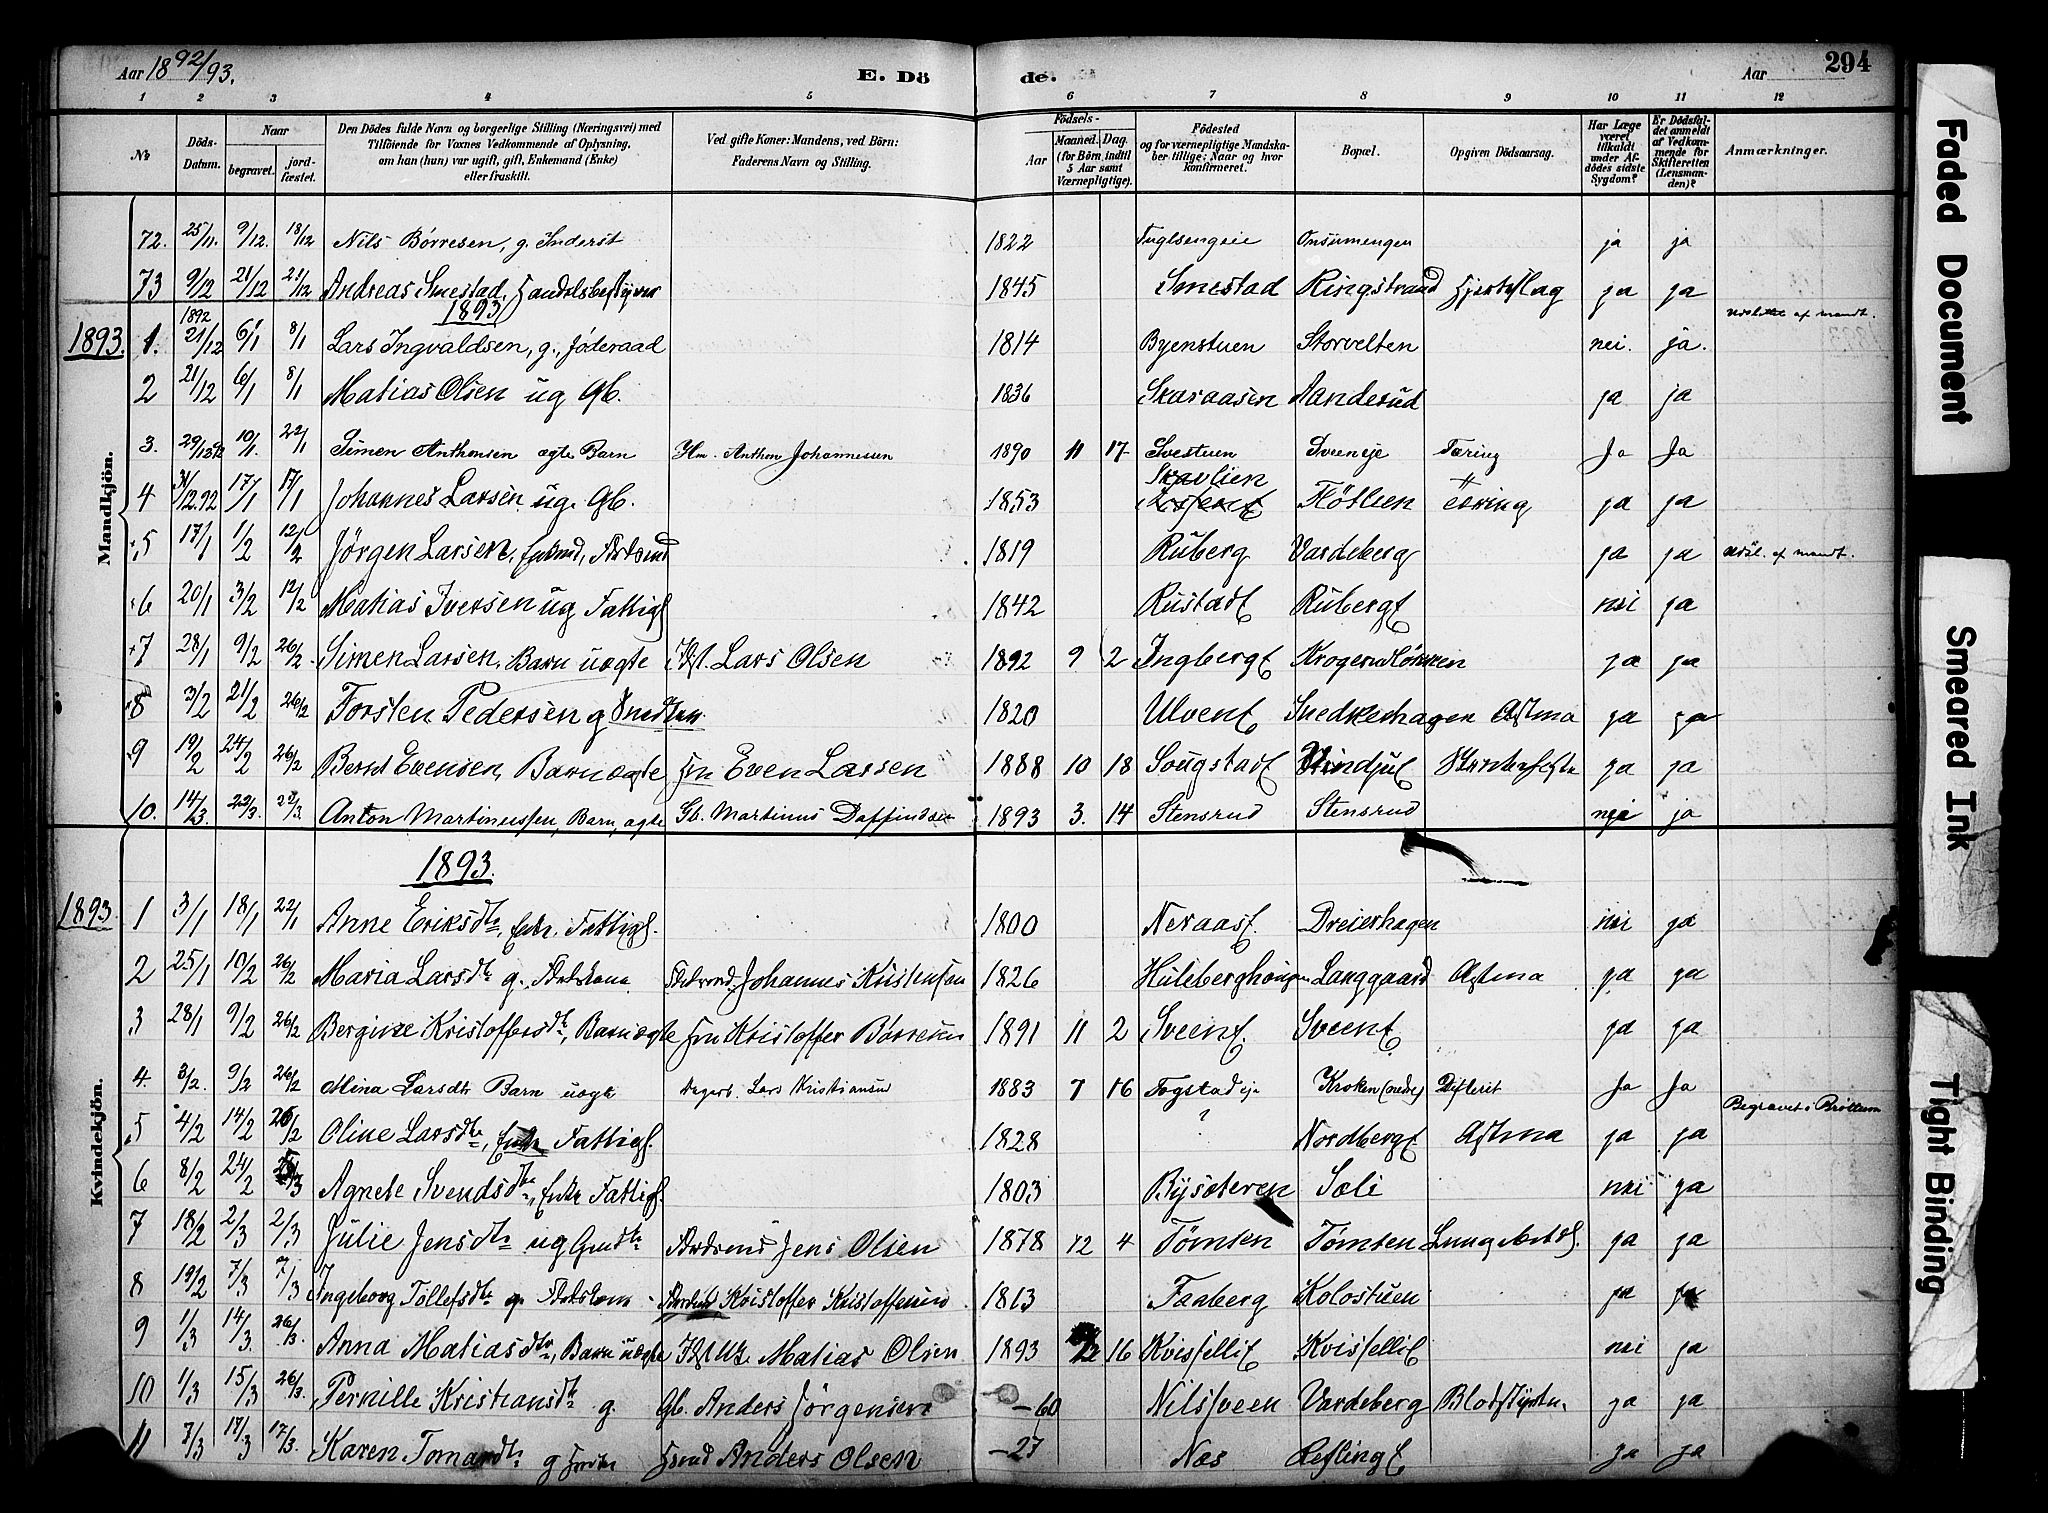 Aar 1892/93. E. Döde. Aar 294
1 2 3 4 5 6 7 8 9 10 11 12
No. Döds-Datum. Naar begravet. jordfæstet. Den Dödes fulde Navn og borgerlige Stilling (Næringsvei) med Tilföiende for Voxnes Vedkommende af Oplysning, om han (hun) var ugift, gift, Enkemand (Enke) eller fraskilt. Ved gifte Koner: Mandens, ved Börn: Faderens Navn og Stilling. Födsels- Aar Maaned. Dag. (for Börn, indtil 5 Aar samt Værnepligtige). Födested og for værnepligtige Mandskaber tillige: Naar og hvor konfirmeret. Bopæl. Opgiven Dödsaarsag. Har Læge været tilkaldt under Afdödes sidste Sygdom? Er Dödsfaldet anmeldt af Vedkommende for Skifteretten (Lensmanden)? Anmærkninger.
72. 25/11. 9/12. 18/12 Nils Børresen, g. Inderst 1822 Fuglsengeie Onsumengen ja ja
73 9/12 21/12 21/12 Andreas Smestad, Handelsbestyrer 1845 Smestad Ringstrand Hjerteslag ja ja
1893
1893. Mandkjön.
1. 1892 21/12 6/1 8/1 Lars Ingvaldsen, g., Føderaad 1814 Byenstuen Storvelten nei. ja.
2 21/12 6/1 8/1 Matias Olsen ug Gb. 1836 Skaraasen Aanderud ja ja
3. 29/12 92 10/1. 22/1 Simen Anthonsen ægte Barn Hm. Anthon Johannessen 1890 11 17 Svestuen Sveneje Tæring Ja Ja
4 31/12.92 17/1 17/1 Johannes Larsen ug. Gb. 1853 Skavlien Flötlien Tæring ja ja
5 17/1 1/2 12/2 Jørgen Larsen, Enkmd, 1819 Ruberg Vardeberg ja ja
6 20/1 3/2 12/2 Matias Iversen ug Fattigl 1842 Rustad Ruberg nei ja
7 28/1 9/2 26/2. Simen Larsen, Barn uægte Lars Olsen 1892 9 2 Ingberg ja ja
8 3/2 21/2 26/2 Torsten Pedersen g 1820 Ulven Snedkerhagen Astma ja ja
9 19/2 24/2 26/2 Bernt Evensen, Barn ægte Even Larsen 1888 10 18 Sougstad ja ja
10. 14/3. 22/3. 22/3. Anton Martinussen, Barn, ægte Gb. Martinus Daffindsen 1893 3. 14 Stensrud Stensrud ja
1893.
1893 Kvindekjön.
1 3/1 18/1 22/1 Anne Eriksdtr, Enke. Fattigl. 1800 Neraas Dreierhagen nei ja
2 25/1 10/2 26/2 Maria Larsdtr g. Johannes Kristensen 1826 Huleberghougen Langgaard Astma ja ja
3 28/1 9/2 26/2 Bergine Kristoffersdtr, Barn ægte Kristoffer Børresen 1891 11 2 Sveen Sveen ja ja
4. 3/2. 9/2 26/2 Mina Larsdtr Barn uægte Lars Kristiansen 1883 7 16 Fogstad eje Kroken (nedre) Difterit Ja Ja
5 4/2 14/2 26/2 Oline Larsdtr, Enke Fattigl. 1828 ? Nordberg Astma ja ja Begravet i Brøttum
6 8/2 24/2 Agnete Svendsdtr, Enke Fattigl. 1803 Bysæteren Sæli nei ja
7 18/2 2/3 2/3 Julie Jensdtr ug Gmdtr Jens Olsen 1878 12 4 Tømten Tømten ja ja
8 19/2 7/3 7/3 Ingeborg Tollefsdtr g. Kristoffer Kristoffersen 1813 Faaberg Kolostuen ja ja
9 1/3 14/3 26/3. Anna Matiasdtr, Barn uægte Matias Olsen 1893 2 16 Kvisselli Kvisselli nei ja
10 1/3 15/3 26/3. Pernille Kristiansdtr g. Gb. Anders Jørgensen -60 Nilssveen Vardeberg Blodstyrtn. ja ja
11 7/3 17/3 17/3. Karen Tomasdtr g Anders Olsen -27 Næs Refling ja ja
Faded Document
Smeared Ink
Tight Binding